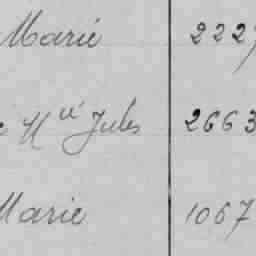 Marie 2227
Jules 2663
Marie 1067